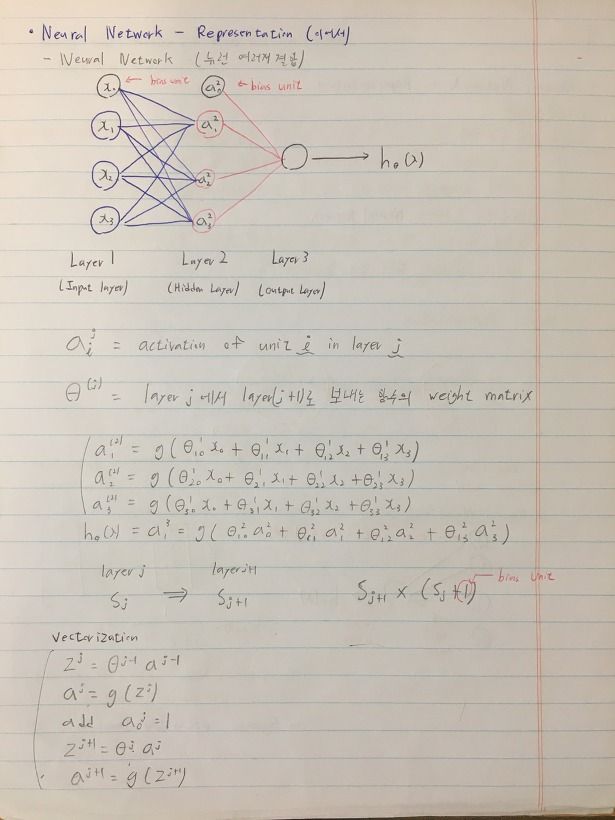 • Neural Network - Representation (이어서)
- Neural Network (뉴런 여러개 결합)
x₀ ← bias unit a₀² ← bias unit
x₁ a₁²
hθ(x)
x₂ a₂²
x₃ a₃²
Layer 1 Layer 2 Layer 3
(Input layer) (Hidden Layer) (output Layer)
aᵢʲ = activation of unit i in layer j
θ⁽ʲ⁾ = layer j 에서 layer(j+1)로 보내는 함수의 weight matrix
a₁⁽²⁾ = g(θ₁₀¹x₀ + θ₁₁¹x₁ + θ₁₂¹x₂ + θ₁₃¹x₃)
a₂⁽²⁾ = g(θ₂₀¹x₀ + θ₂₁¹x₁ + θ₂₂¹x₂ + θ₂₃¹x₃)
a₃⁽²⁾ = g(θ₃₀¹x₀ + θ₃₁¹x₁ + θ₃₂¹x₂ + θ₃₃¹x₃)
hθ(x) = a₁³ = g(θ₁₀²a₀² + θ₁₁²a₁² + θ₁₂²a₂² + θ₁₃²a₃²)
layer j layer j+1
bias unit
Sⱼ ⇒ Sⱼ₊₁ Sⱼ₊₁ × (Sⱼ+1)
Vectorization
zʲ = θʲ⁻¹ aʲ⁻¹
aʲ = g(zʲ)
add a₀ʲ = 1
zʲ⁺¹ = θʲ aʲ
aʲ⁺¹ = g(zʲ⁺¹)